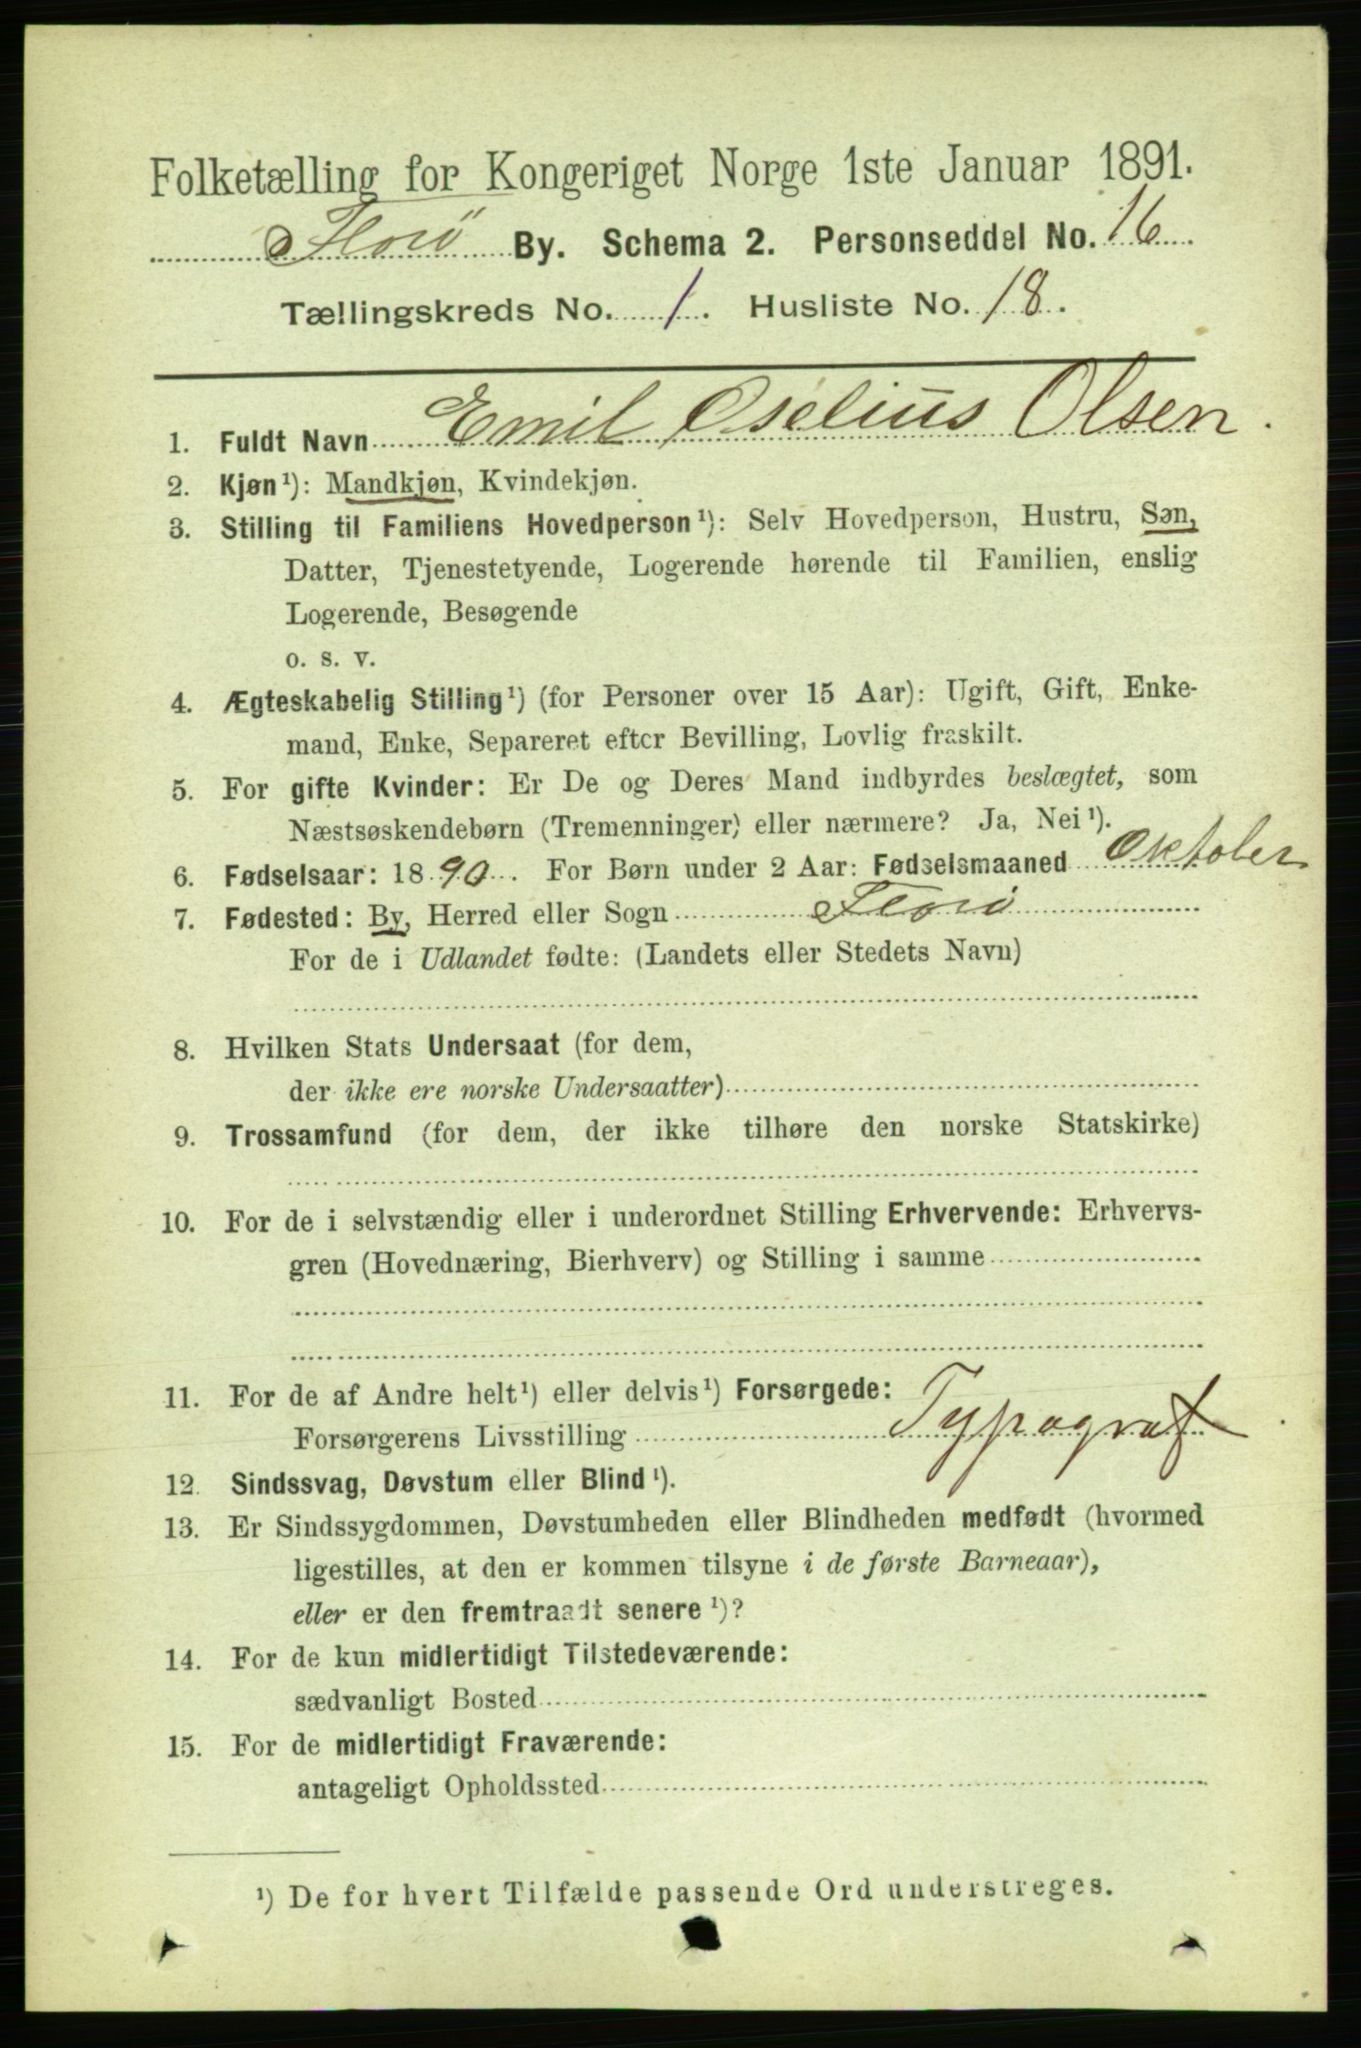 Folketælling for Kongeriget Norge 1ste Januar 1891.
Florö By. Schema 2. Personseddel No. 16
Tællingskreds No. 1. Husliste No. 18.
1. Fuldt Navn Emil Oselius Olsen.
2. Kjøn¹): Mandkjøn, Kvindekjøn.
3. Stilling til Familiens Hovedperson¹): Selv Hovedperson, Hustru, Søn,
Datter, Tjenestetyende, Logerende hørende til Familien, enslig
Logerende, Besøgende
o. s. v.
4. Ægteskabelig Stilling¹) (for Personer over 15 Aar): Ugift, Gift, Enke-
mand, Enke, Separeret efter Bevilling, Lovlig fraskilt.
5. For gifte Kvinder: Er De og Deres Mand indbyrdes beslægtet, som
Næstsøskendebørn (Tremenninger) eller nærmere? Ja, Nei¹).
6. Fødselsaar: 1890. For Børn under 2 Aar: Fødselsmaaned Oktober
7. Fødested: By, Herred eller Sogn Florö
For de i Udlandet fødte: (Landets eller Stedets Navn)
8. Hvilken Stats Undersaat (for dem,
der ikke ere norske Undersaatter)
9. Trossamfund (for dem, der ikke tilhøre den norske Statskirke)
10. For de i selvstændig eller i underordnet Stilling Erhvervende: Erhvervs-
gren (Hovednæring, Bierhverv) og Stilling i samme
11. For de af Andre helt¹) eller delvis¹) Forsørgede:
Forsørgerens Livsstilling Typograf
12. Sindssvag, Døvstum eller Blind¹).
13. Er Sindssygdommen, Døvstumheden eller Blindheden medfødt (hvormed
ligestilles, at den er kommen tilsyne i de første Barneaar),
eller er den fremtraadt senere¹)?
14. For de kun midlertidigt Tilstedeværende:
sædvanligt Bosted
15. For de midlertidigt Fraværende:
antageligt Opholdssted
¹) De for hvert Tilfælde passende Ord understreges.